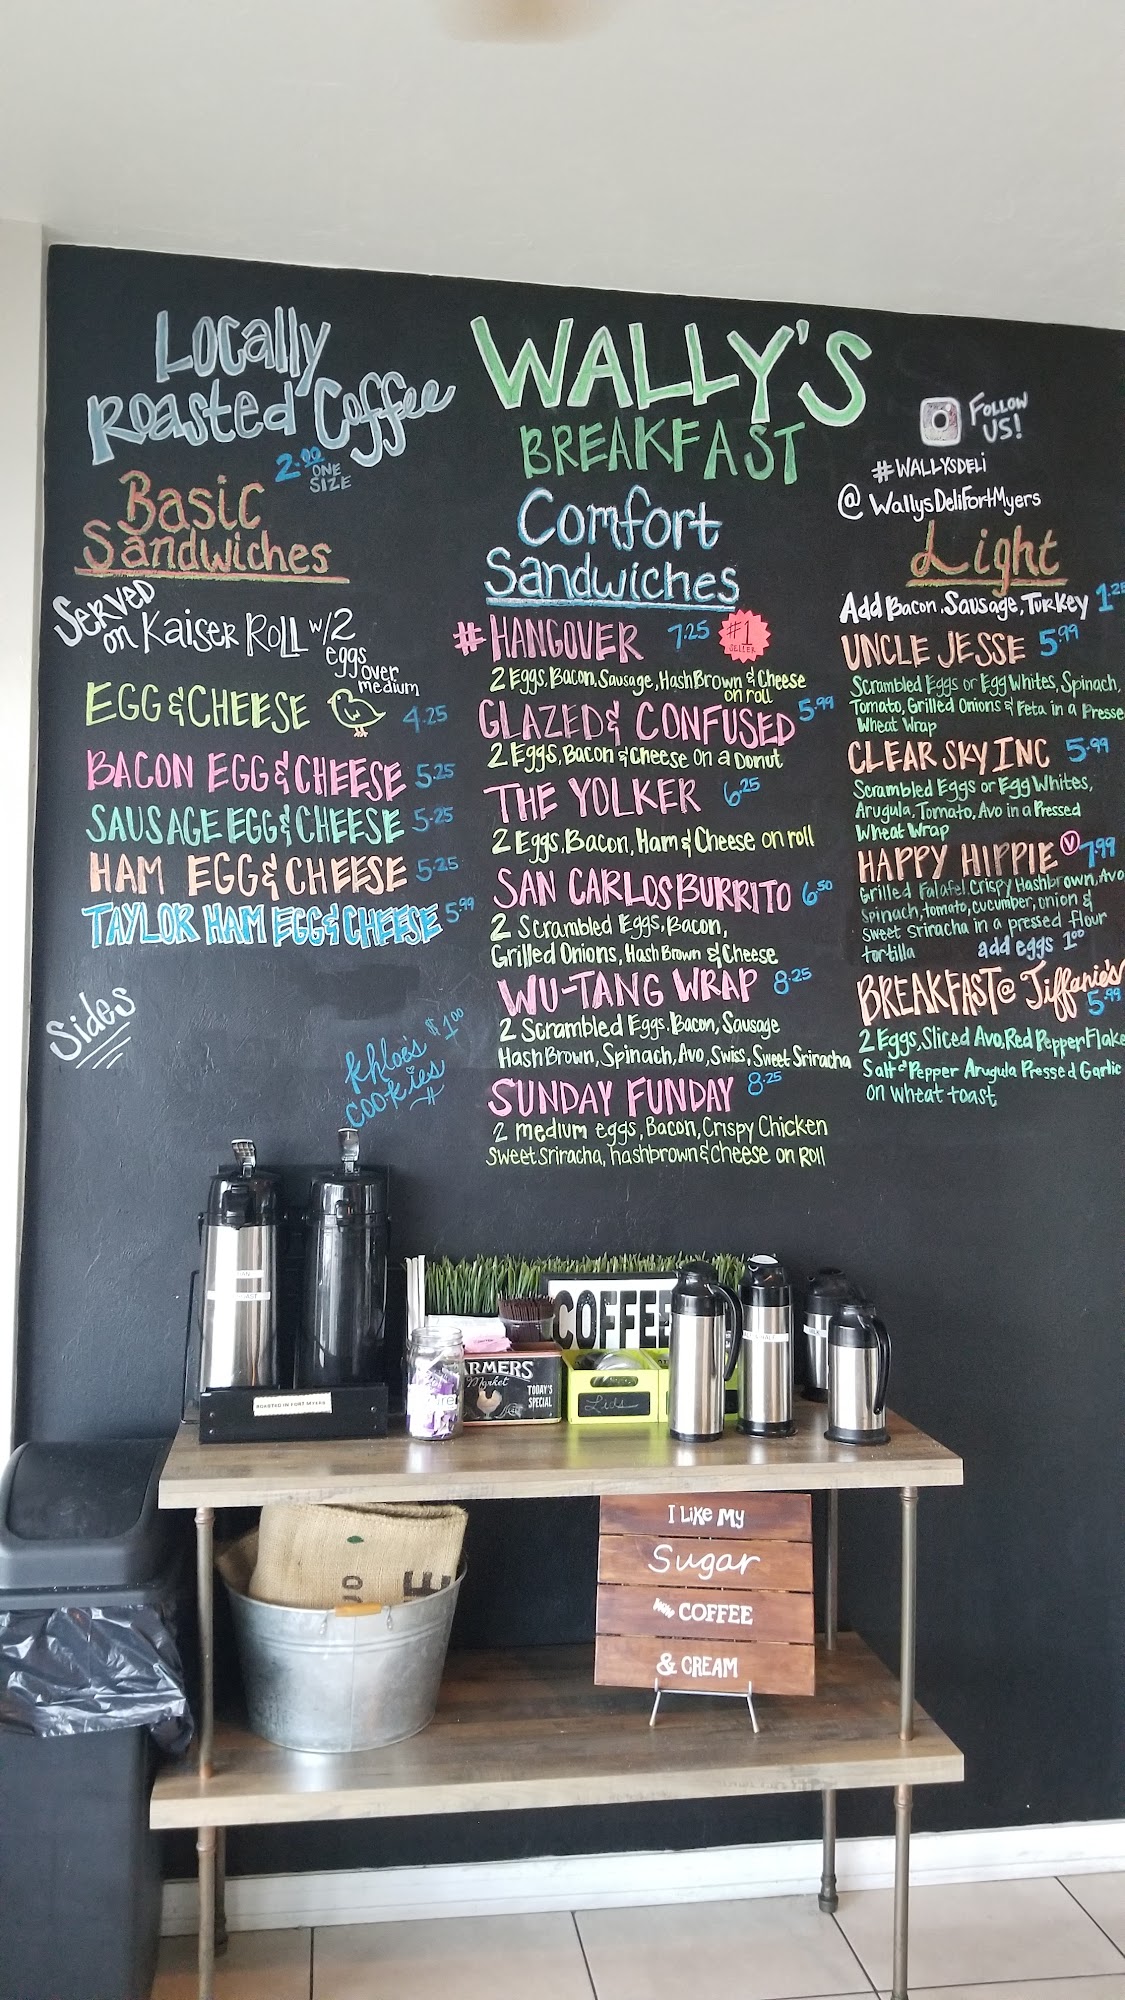 Locally
Roasted Coffee
2.00 ONE
SIZE
Basic
Sandwiches
SERVED
on KAISER ROLL w/2
eggs
over
medium
EGG & CHEESE 4.25
BACON EGG & CHEESE 5.25
SAUSAGE EGG & CHEESE 5.25
HAM EGG & CHEESE 5.25
TAYLOR HAM EGG & CHEESE 5.99
Sides
Khloe's $1.00
COOKIES
WALLY'S
BREAKFAST
Comfort
Sandwiches
#HANGOVER 7.25 #1
SELLER
2 Eggs, Bacon, Sausage, Hash Brown & Cheese
on roll
GLAZED & CONFUSED 5.99
2 Eggs, Bacon & Cheese on a Donut
THE YOLKER 6.25
2 Eggs, Bacon, Ham & Cheese on roll
SAN CARLOS BURRITO 6.50
2 Scrambled Eggs, Bacon,
Grilled Onions, Hash Brown & Cheese
WU-TANG WRAP 8.25
2 Scrambled Eggs, Bacon, Sausage
Hash Brown, Spinach, Avo, Swiss, Sweet Sriracha
SUNDAY FUNDAY 8.25
2 medium eggs, Bacon, Crispy Chicken
Sweet Sriracha, hashbrown & Cheese on Roll
FOLLOW
US!
#WALLYSDELI
@WallysDeliFortMyers
Light
Add Bacon, Sausage, Turkey 1.25
UNCLE JESSE 5.99
Scrambled Eggs or Egg Whites, Spinach,
Tomato, Grilled Onions & Feta in a Presse
Wheat Wrap
CLEAR SKY INC 5.99
Scrambled Eggs or Egg Whites,
Arugula, Tomato, Avo in a Pressed
Wheat Wrap
HAPPY HIPPIE V 7.99
Grilled Falafel Crispy Hashbrown, Avo
Spinach, tomato, cucumber, onion &
Sweet Sriracha in a pressed flour
tortilla add eggs 1.00
BREAKFAST @ Tiffanie's
5.99
2 Eggs, Sliced Avo, Red Pepper Flake
Salt & Pepper Arugula Pressed Garlic
on wheat toast
COFFEE
ARMERS
Market
TODAY'S
SPECIAL
Lids
ROASTED IN FORT MYERS
I LIKE MY
Sugar
with COFFEE
& CREAM